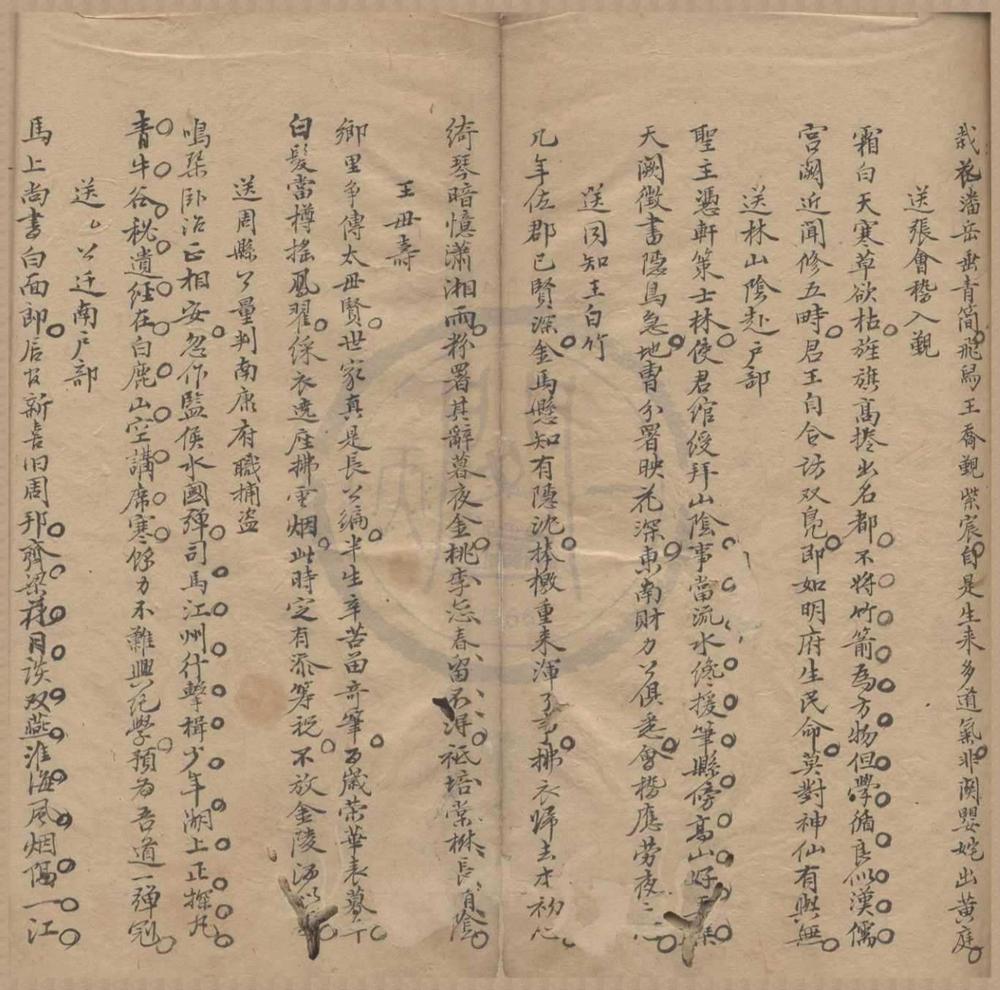 栽花潘岳垂青简飛舄王喬覲紫宸自是生来多道氣非関嬰姹出黄庭
送張會稽入覲
霜白天寒草欲枯旌旗髙捲出名都不将竹箭為方物但學循良似漢儒
宫闕近聞修五畤君王自合訪双鳧即如明府生民命莫對神仙有與無
送林山陰赴户部
聖主憑軒策士林使君綰綬拜山陰事當流水纔援筆縣傍髙山好
天闕徴書隠鳥急地曹分署映花深東南財力公俱悉會稽應勞夜二心
送同知王白竹
几年佐郡已賢深金馬懸知有隠沈捧檄重来渾了事拂衣歸去才初心
绮琴暗憶瀟湘雨粉署其辭暮夜金桃李忘春留不得祗培棠樾長自陰
王母壽
鄉里争傳太母賢世家真是長公編半生辛苦留竒筆百歳荣華表蓼
白髪當樽摇鳳翟綵衣遶座拂雲烟此時定有添筹祝不放金陵酒
送周縣公量判南康府職捕盗
鳴琹卧治正相安忽作監侯水國彈司馬江州行擊楫少年湖上正探丸
青牛谷秘遺經在白鹿山空講席寒餘力不難興祀學預為吾道一弹冠
送公迁南户部
馬上尚書白面郎居官新喜旧周邦齊梁花月談双燕淮海風烟隔一江